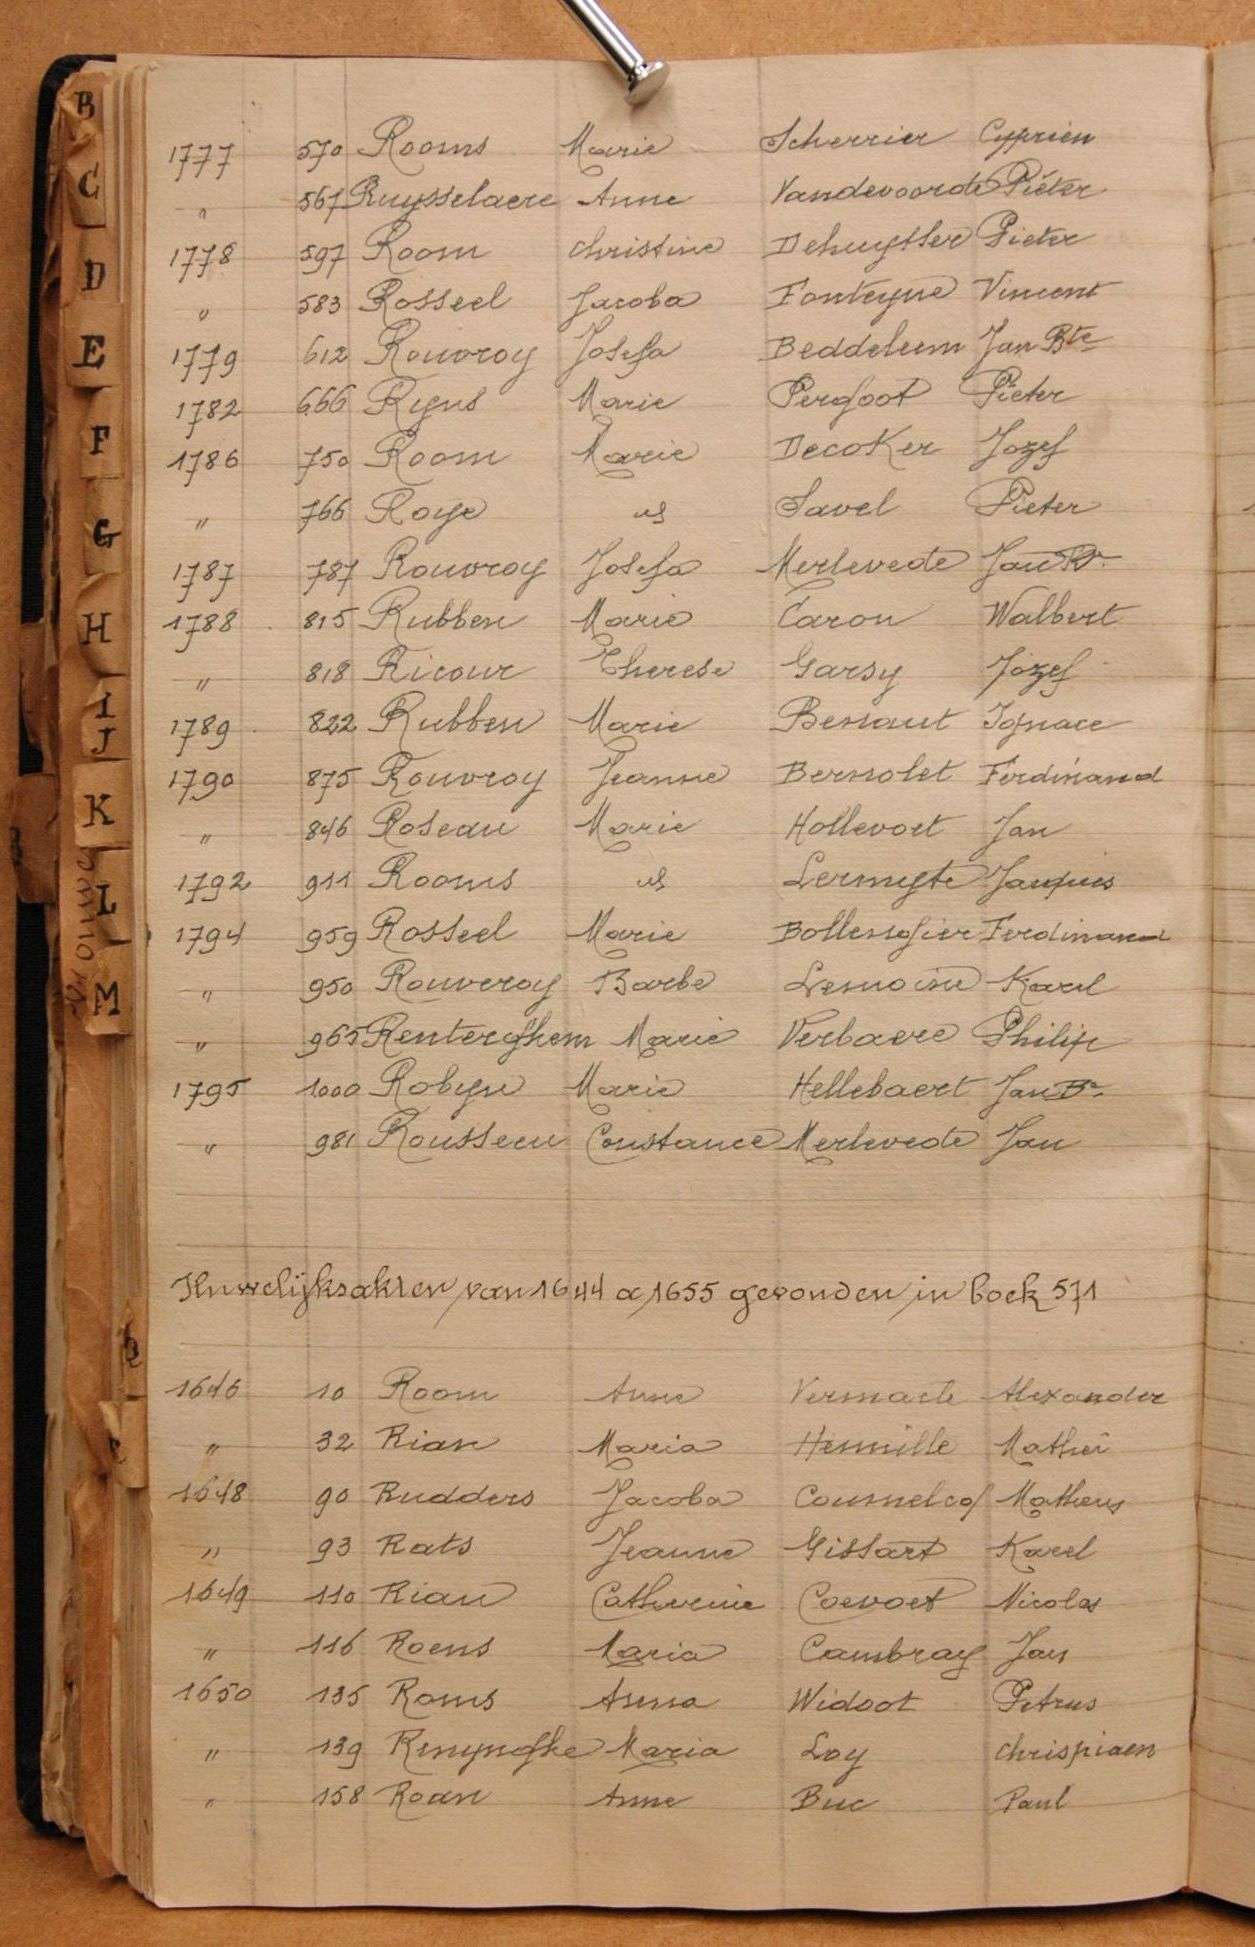 B
C
D
E
F
G
H
I
J
K
L
M
1777 570 Rooms Marie Scherrier Cyprien
" 567 Ruysselaere Anne Vandevoorde Pieter
1778 597 Room Christine Dehuysser Pieter
" 583 Rosseel Jacoba Fonteyne Vincent
1779 612 Rouvroy Josefa Beddeleem Jan Bte
1782 666 Ryns Marie Perfoot Pieter
1786 750 Room Marie Decoker Jozef
" 766 Roye id Savel Pieter
1787 787 Rouvroy Josefa Merlevede Jan Bte
1788 815 Rubben Marie Caron Walbert
" 818 Ricour Therese Garsy Jozef
1789 822 Rubben Marie Besnaut Ignace
1790 875 Rouvroy Jeanne Bernolet Ferdinand
" 846 Roseau Marie Hollevoet Jan
1792 911 Rooms id Lermyte Jacques
1794 959 Rosseel Marie Bollengier Ferdinand
" 950 Rouveroy Barbe Lemoine Karel
" 965 Renterghem Marie Verbaere Philip
1795 1000 Robyn Marie Hellebaert Jan Bte
" 981 Rousseeu Constance Merlevede Jan
Huwelijksakten van 1644 a 1655 gevonden in boek 571
1646 10 Room Anne Vermaele Alexander
" 32 Rian Maria Hennille Mathei
1648 90 Rudders Jacoba Matheus
" 93 Rats Jeanne Gissart Karel
1649 110 Rian Catherine Coevoet Nicolas
" 116 Roens Maria Cambray Jan
1650 135 Roms Anna Widoot Petrus
" 139 Renynghe Maria Loy Chrispiaen
" 158 Roan Anne Buc Paul